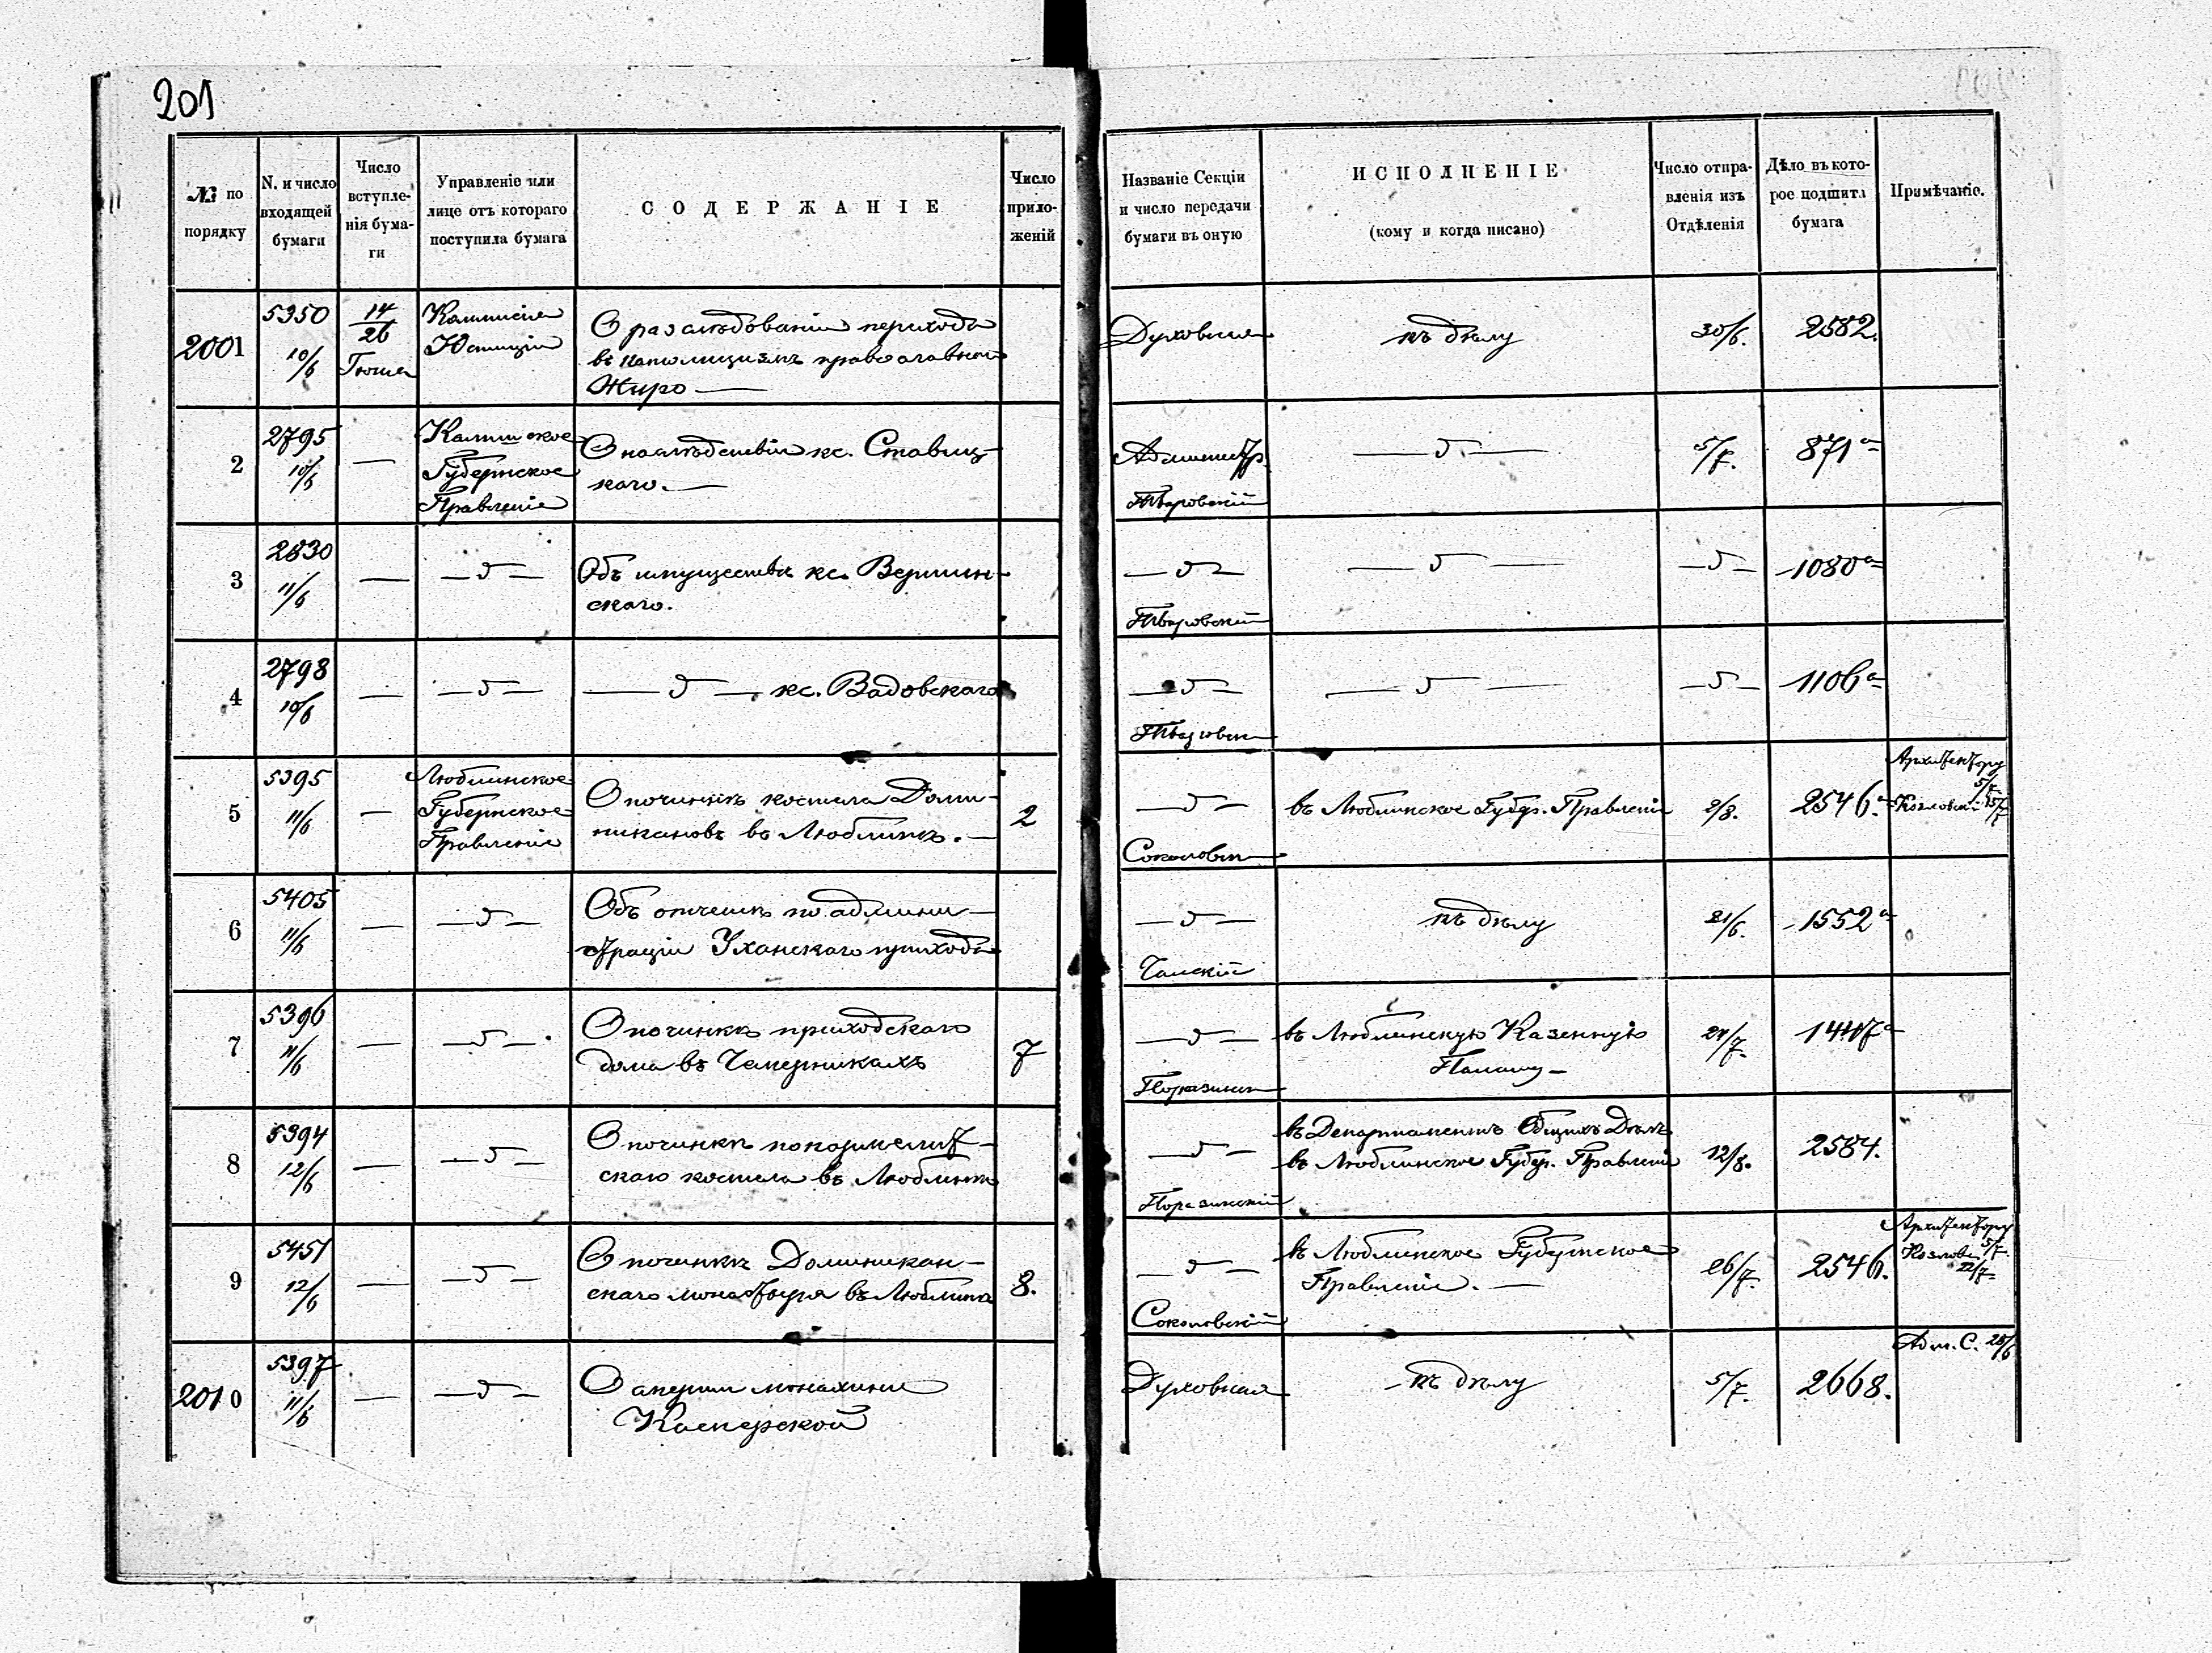 201
№ по порядку
N. и число входящей бумаги
Число вступленія бумаги
Управленіе или лице отъ котораго поступила бумага
СОДЕРЖАНІЕ
Число приложеній
Названіе Секціи и число передачи бумаги въ оную
ИСПОЛНЕНІЕ
(кому и когда писано)
Число отправленія изъ Отдѣленія
Дѣло въ которое подшита бумага
Примѣчаніе.
2001
5350
10/6
14/26
Іюня
Коммисія
Юстиціи
О разслѣдованіи перехода
въ католицизмъ православной
Жиро —
Духовная
къ дѣлу
30/6.
2582.
2
2795
10/6
—
Калишское
Губернское
Правленіе
О наслѣдствѣ кс. Ставиц-
каго. —
Админстр.
Тваровскій
— " —
5/7.
871а
3
2830
11/6
—
— " —
Объ имуществѣ кс. Вершин-
скаго.
— " —
Тваровскій
— " —
— " —
1080а
4
2798
10/6
—
— " —
— " — кс. Вадовскаго
— " —
— " —
— " —
1106а
5
5395
11/6
—
Люблинское
Губернское
Правленіе
О починкѣ костела Доми-
никановъ въ Люблинѣ. —
2
— " —
въ Люблинское Губер. Правленіе
2/8.
2546.
Архитектору 5/7
6
5405
11/6
—
— " —
Объ отчетѣ по админи-
страціи Уханскаго прихода
— " —
къ дѣлу
21/6.
1552а
7
5396
11/6
—
— " —
О починкѣ приходскаго
дома въ Чемерникахъ
7
— " —
въ Люблинскую Казенную
Палату —
21/7.
8
5394
12/6
—
— " —
О починкѣ покармелит-
скаго костела въ Люблинѣ
— " —
Поразинскій
въ Департаментъ Общихъ Дѣлъ
въ Люблинское Губер. Правленіе
12/8.
2584.
9
5451
12/6
—
— " —
О починкѣ Доминикан-
скаго монастыря въ Люблинѣ
8.
— " —
Соколовскій
въ Люблинское Губернское
Правленіе. —
26/7.
2546.
Архитектору
5/7.
22/7
2010
5397
11/6
—
— " —
О
монахини
Касперской
Духовная
къ дѣлу
5/7.
2668.
Адм. С.